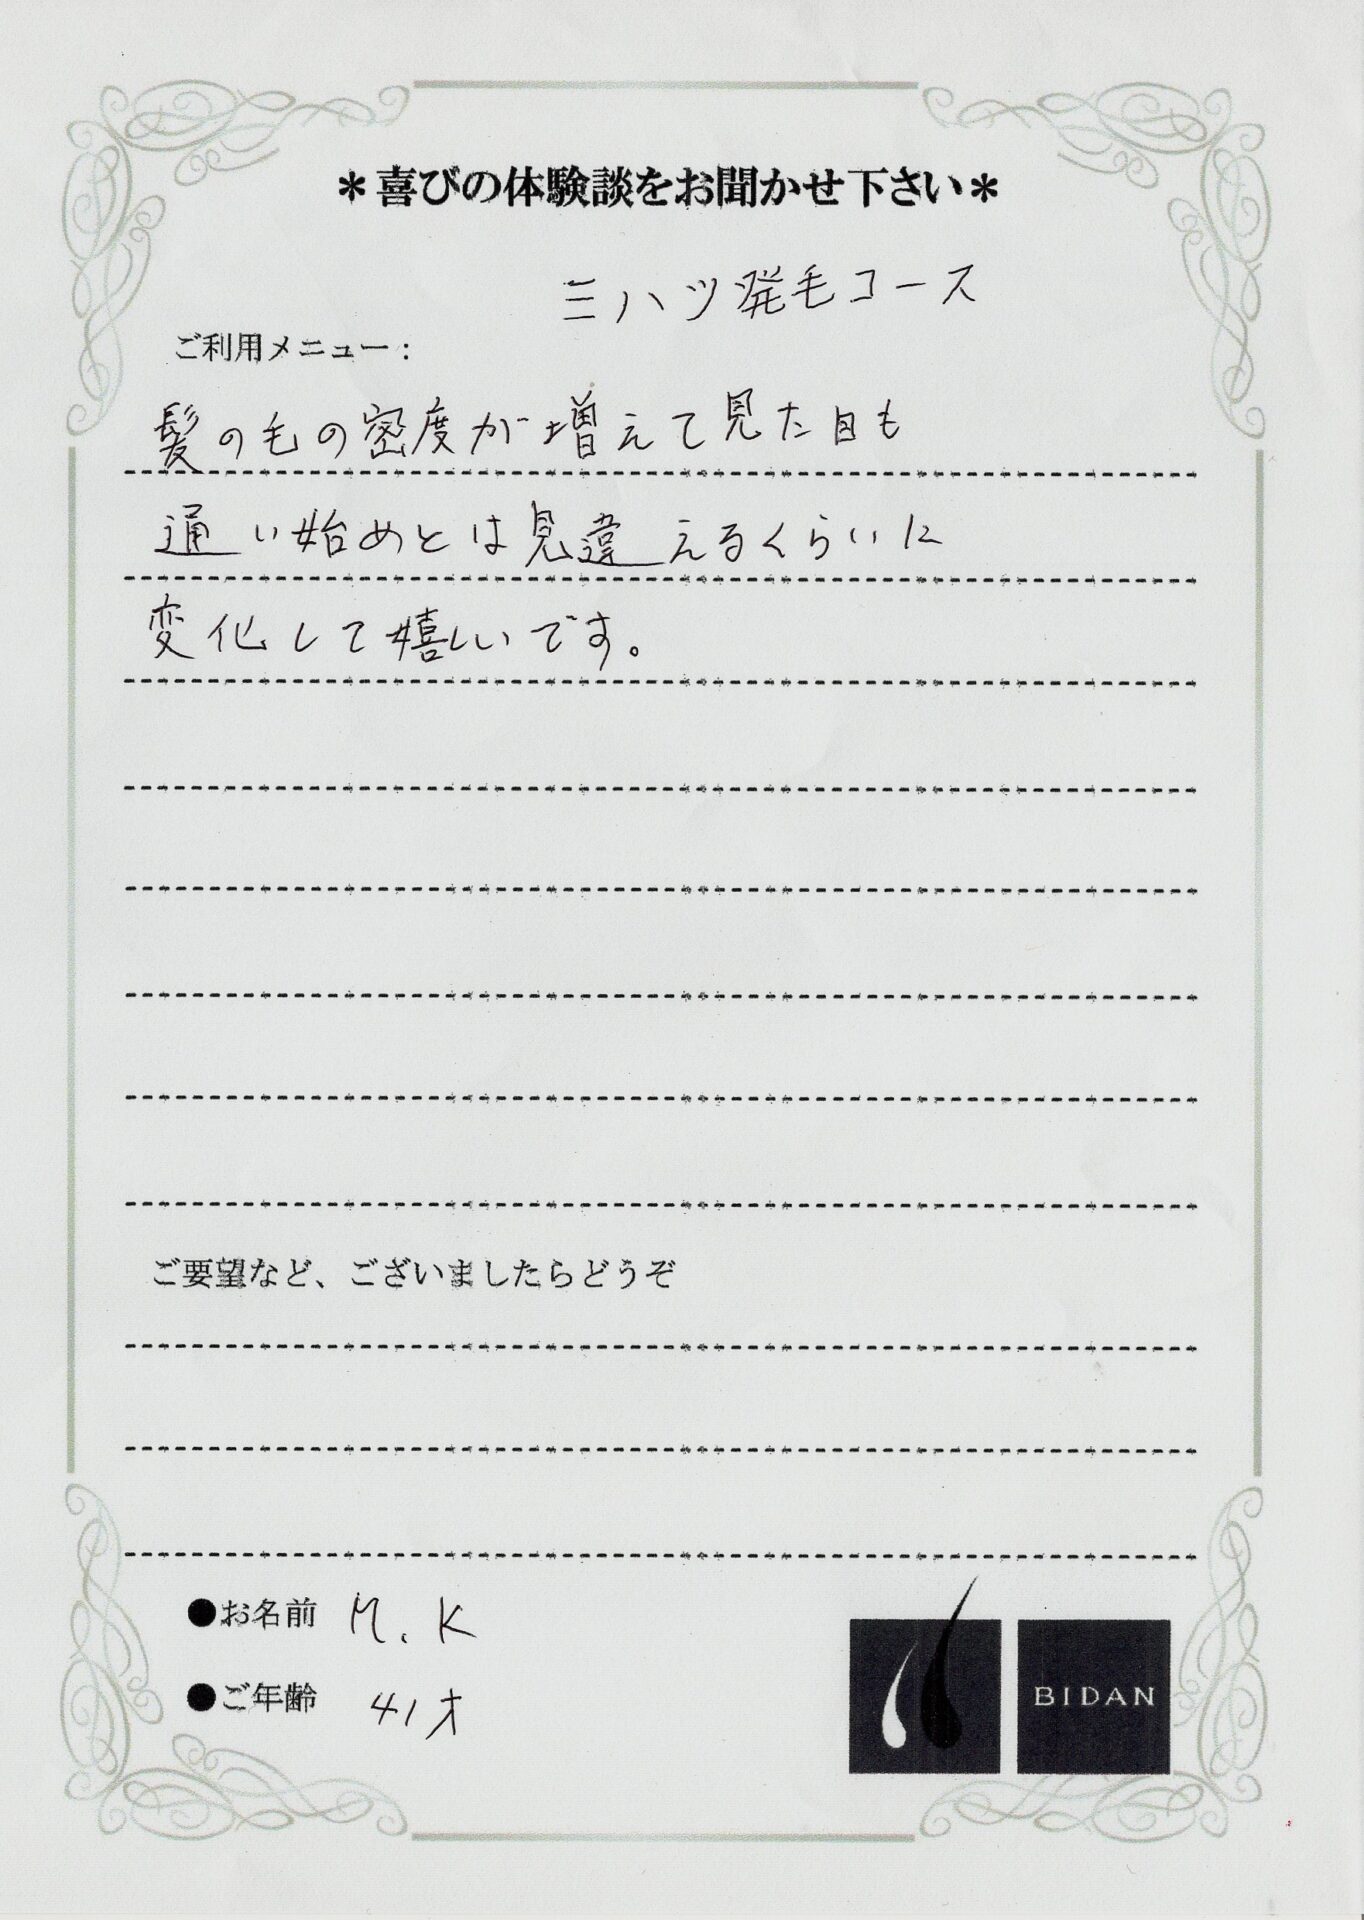 ＊喜びの体験談をお聞かせ下さい＊
ミハツ発毛コース
ご利用メニュー：
髪の毛の密度が増えて見た目も
通い始めとは見違えるくらいに
変化して嬉しいです。
ご要望など、ございましたらどうぞ
●お名前 M.K
●ご年齢 41才
BIDAN